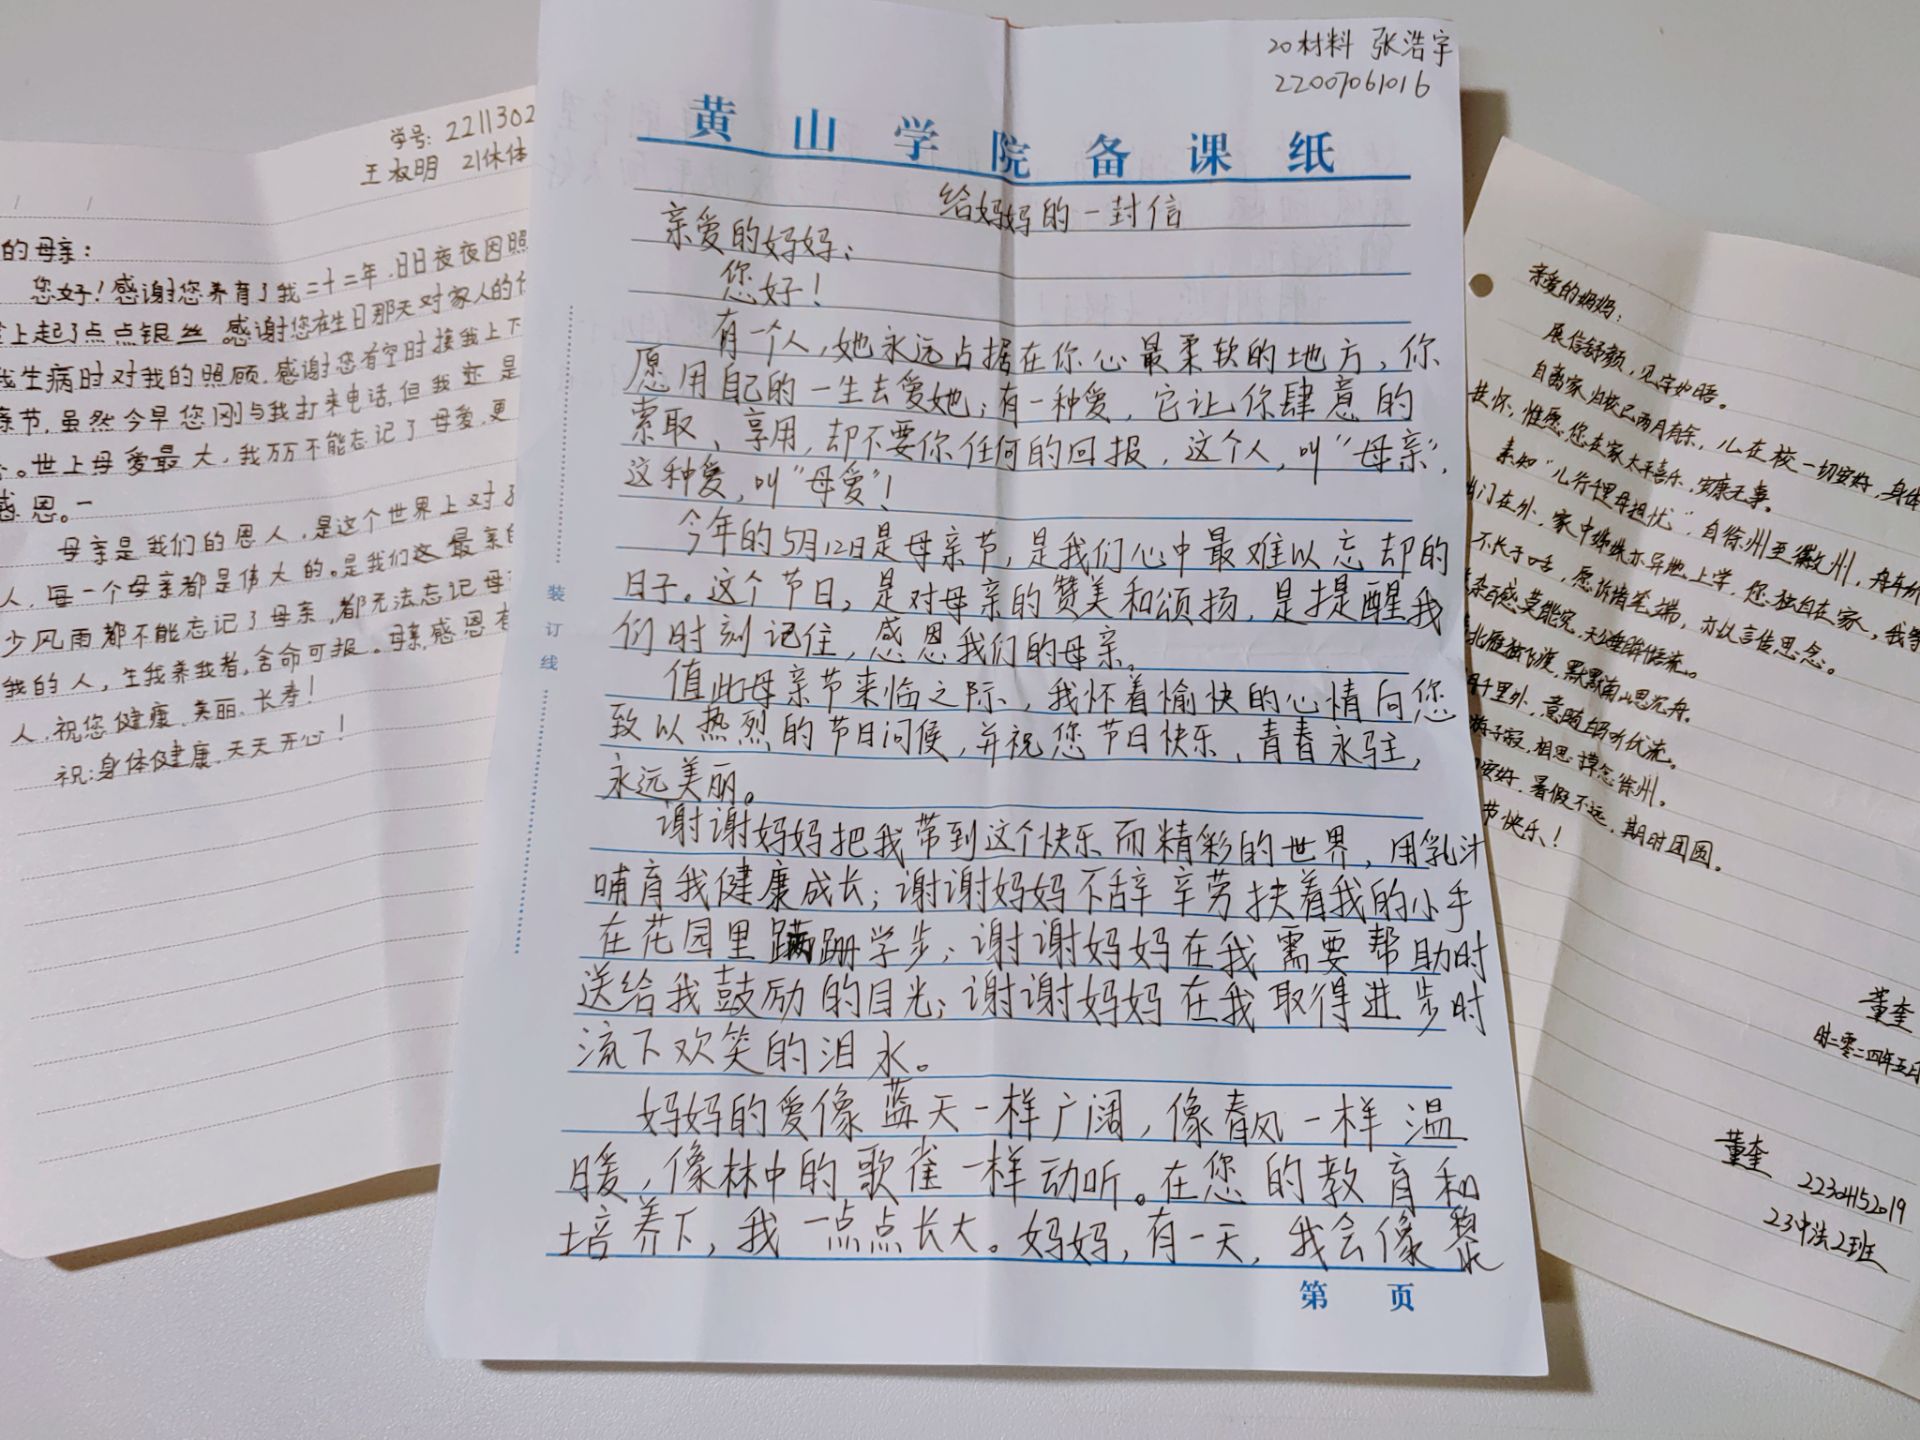 学号: 2211302
王教明 21休体
的母亲:
您好!感谢您养育了我二十二年,日日夜夜因照
上起了点点银丝.感谢您在生日那天对家人的付
我生病时对我的照顾.感谢您有空时接我上下
亲节.虽然今早您刚与我打来电话,但我还是
。世上母爱最大,我万万不能忘记了母爱,更
感恩。
母亲是我们的恩人,是这个世界上对
人,每一个母亲都是伟大的.是我们这最亲的
少风雨都不能忘记了母亲,都无法忘记母
我的人,生我养我者,舍命可报.母亲,感恩有
人,祝您健康、美丽、长寿!
祝:身体健康、天天开心!
20材料 张浩宇
22007061016
黄山学院备课纸
给妈妈的一封信
亲爱的妈妈:
您好!
有一个人,她永远占据在你心最柔软的地方,你
愿用自己的一生去爱她;有一种爱,它让你肆意的
索取、享用,却不要你任何的回报,这个人,叫“母亲”,
这种爱,叫“母爱”!
今年的5月12日是母亲节,是我们心中最难以忘却的
日子。这个节日,是对母亲的赞美和颂扬,是提醒我
们时刻记住,感恩我们的母亲。
值此母亲节来临之际,我怀着愉快的心情向您
致以热烈的节日问候,并祝您节日快乐,青春永驻,
永远美丽。
谢谢妈妈把我带到这个快乐而精彩的世界,用乳汁
哺育我健康成长;谢谢妈妈不辞辛劳扶着我的小手
在花园里蹒跚学步;谢谢妈妈在我需要帮助时
送给我鼓励的目光;谢谢妈妈在我取得进步时
流下欢笑的泪水。
妈妈的爱像蓝天一样广阔,像春风一样温
暖,像林中的歌雀一样动听。在您的教育和
培养下,我一点点长大。妈妈,有一天,我会像
装订线
第 页
亲爱的妈妈:
展信舒颜,见字如晤。
自离家赴校已两月有余,儿在校一切安好,身体
挂怀,惟愿您在家太平喜乐,安康无事。
素知“儿行千里母担忧”,自徐州至徽州,舟车
出门在外,家中姊妹亦异地上学,您独自在家,我等
不长于口舌,愿诉情笔端,亦以言信思念。
杂百感莫能究,
北雁独飞渡,默默南山思沉舟。
千里外,意随
游子寂,相思 徐州。
安好,暑假不远,期时团圆。
节快乐!
董奎
时二零二四年五月
董奎 22304152019
23中法2班